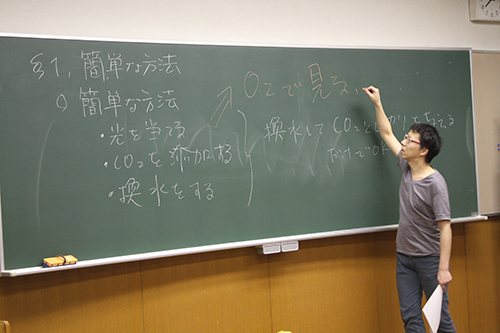 §1. 簡単な方法
○ 簡単な方法
・光を当てる
・CO2を添加する
・換水をする
O2で見る、
換水して CO2とひかりを与える
だけでOK